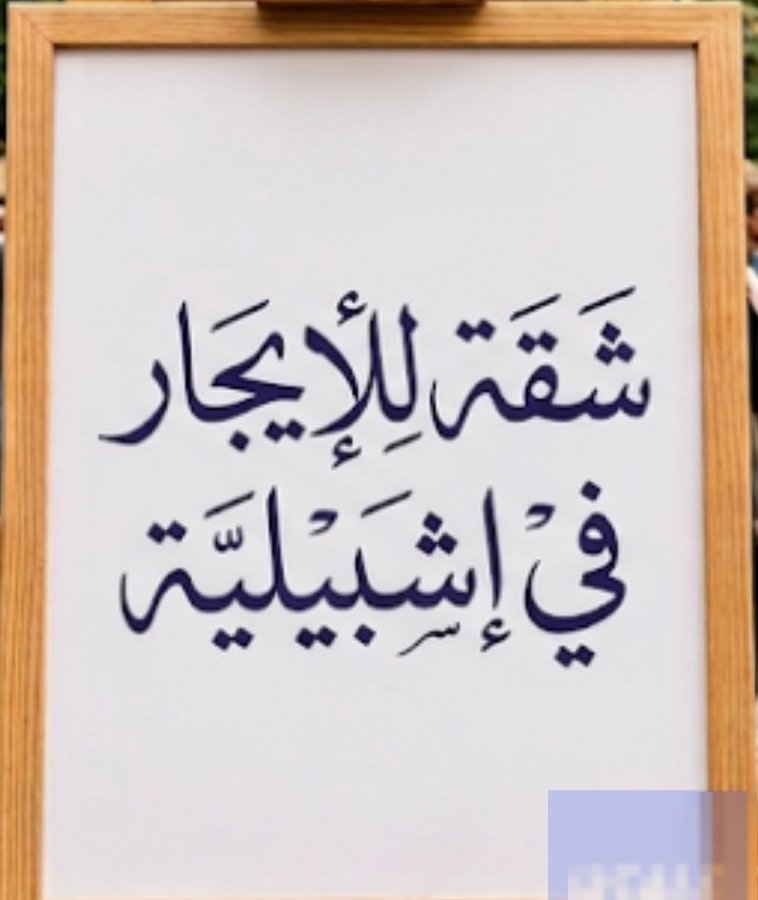 شَقَة لِلأٍيجَار
في إشبَيْليَّة